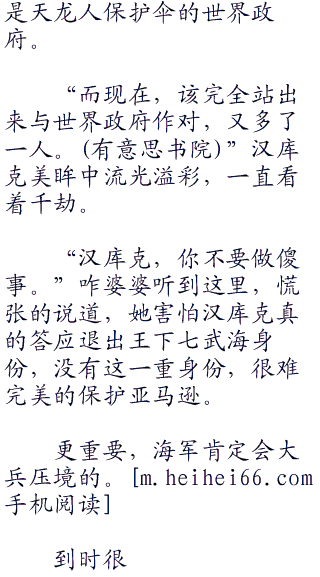 是天龙人保护伞的世界政
府。
“而现在，该完全站出
来与世界政府作对，又多了
一人。(有意思书院)”汉库
克美眸中流光溢彩，一直看
着千劫。
“汉库克，你不要做傻
事。”咋婆婆听到这里，慌
张的说道，她害怕汉库克真
的答应退出王下七武海身
份，没有这一重身份，很难
完美的保护亚马逊。
更重要，海军肯定会大
兵压境的。[m.heihei66.com
手机阅读]
到时很